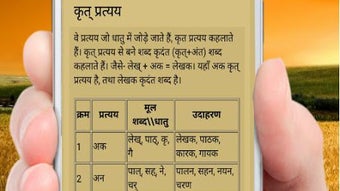 कृत् प्रत्यय
वे प्रत्यय जो धातु में जोड़े जाते हैं, कृत प्रत्यय कहलाते
हैं। कृत् प्रत्यय से बने शब्द कृदंत (कृत्+अंत) शब्द
कहलाते हैं। जैसे- लेख् + अक = लेखक। यहाँ अक कृत्
प्रत्यय है, तथा लेखक कृदंत शब्द है।
क्रम प्रत्यय मूल शब्द\\धातु उदाहरण
1 अक लेख्, पाठ्, कृ, गै लेखक, पाठक, कारक, गायक
2 अन पाल्, सह्, ने, चर् पालन, सहन, नयन, चरण